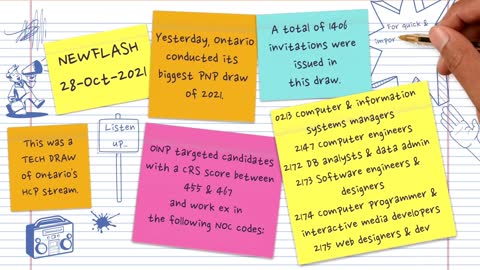 NEWFLASH
28-OCT-2021
Yesterday, Ontario
conducted its
biggest PNP draw
of 2021.
A total of 1406
invitations were
issued in
this draw.
For quick &
impor
This was a
TECH DRAW
of Ontario's
HCP stream.
Listen
up...
OINP targeted candidates
with a CRS score between
455 & 467
and work ex in
the following NOC codes:
0213 Computer & information
systems managers
2147 Computer engineers
2172 DB analysts & data admin
2173 Software engineers &
designers
2174 Computer programmer &
interactive media developers
2175 Web designers & dev